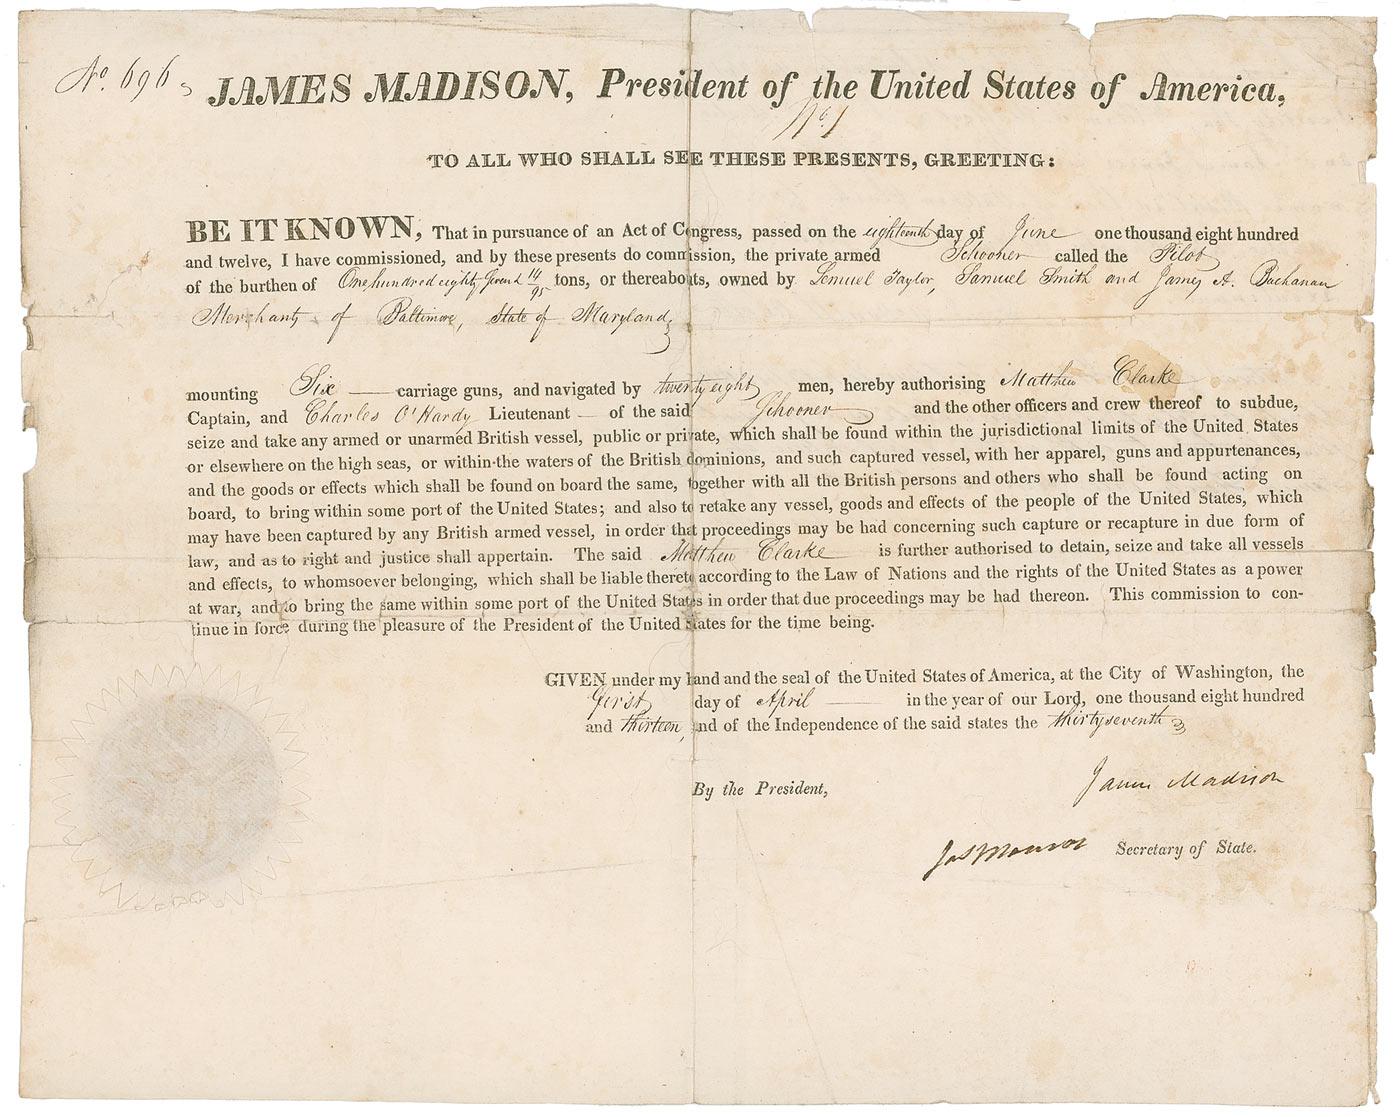 No. 696
JAMES MADISON, President of the United States of America,
No. 1
TO ALL WHO SHALL SEE THESE PRESENTS, GREETING:
BE IT KNOWN, That in pursuance of an Act of Congress, passed on the eighteenth day of June one thousand eight hundred
and twelve, I have commissioned, and by these presents do commission, the private armed Schooner called the Pilot
of the burthen of One hundred eighty Seven & 14/95 tons, or thereabouts, owned by Lemuel Taylor, Samuel Smith and James A. Buchanan
Merchants of Baltimore, State of Maryland,
mounting Six carriage guns, and navigated by twenty eight men, hereby authorising Matthew Clarke
Captain, and Charles O'Hardy Lieutenant of the said Schooner and the other officers and crew thereof to subdue,
seize and take any armed or unarmed British vessel, public or private, which shall be found within the jurisdictional limits of the United States
or elsewhere on the high seas, or within the waters of the British dominions, and such captured vessel, with her apparel, guns and appurtenances,
and the goods or effects which shall be found on board the same, together with all the British persons and others who shall be found acting on
board, to bring within some port of the United States; and also to retake any vessel, goods and effects of the people of the United States, which
may have been captured by any British armed vessel, in order that proceedings may be had concerning such capture or recapture in due form of
law, and as to right and justice shall appertain. The said Matthew Clarke is further authorised to detain, seize and take all vessels
and effects, to whomsoever belonging, which shall be liable thereto according to the Law of Nations and the rights of the United States as a power
at war, and to bring the same within some port of the United States in order that due proceedings may be had thereon. This commission to con-
tinue in force during the pleasure of the President of the United States for the time being.
GIVEN under my hand and the seal of the United States of America, at the City of Washington, the
first day of April in the year of our Lord, one thousand eight hundred
and thirteen, and of the Independence of the said states the thirty seventh
By the President, James Madison
Jas Monroe Secretary of State.